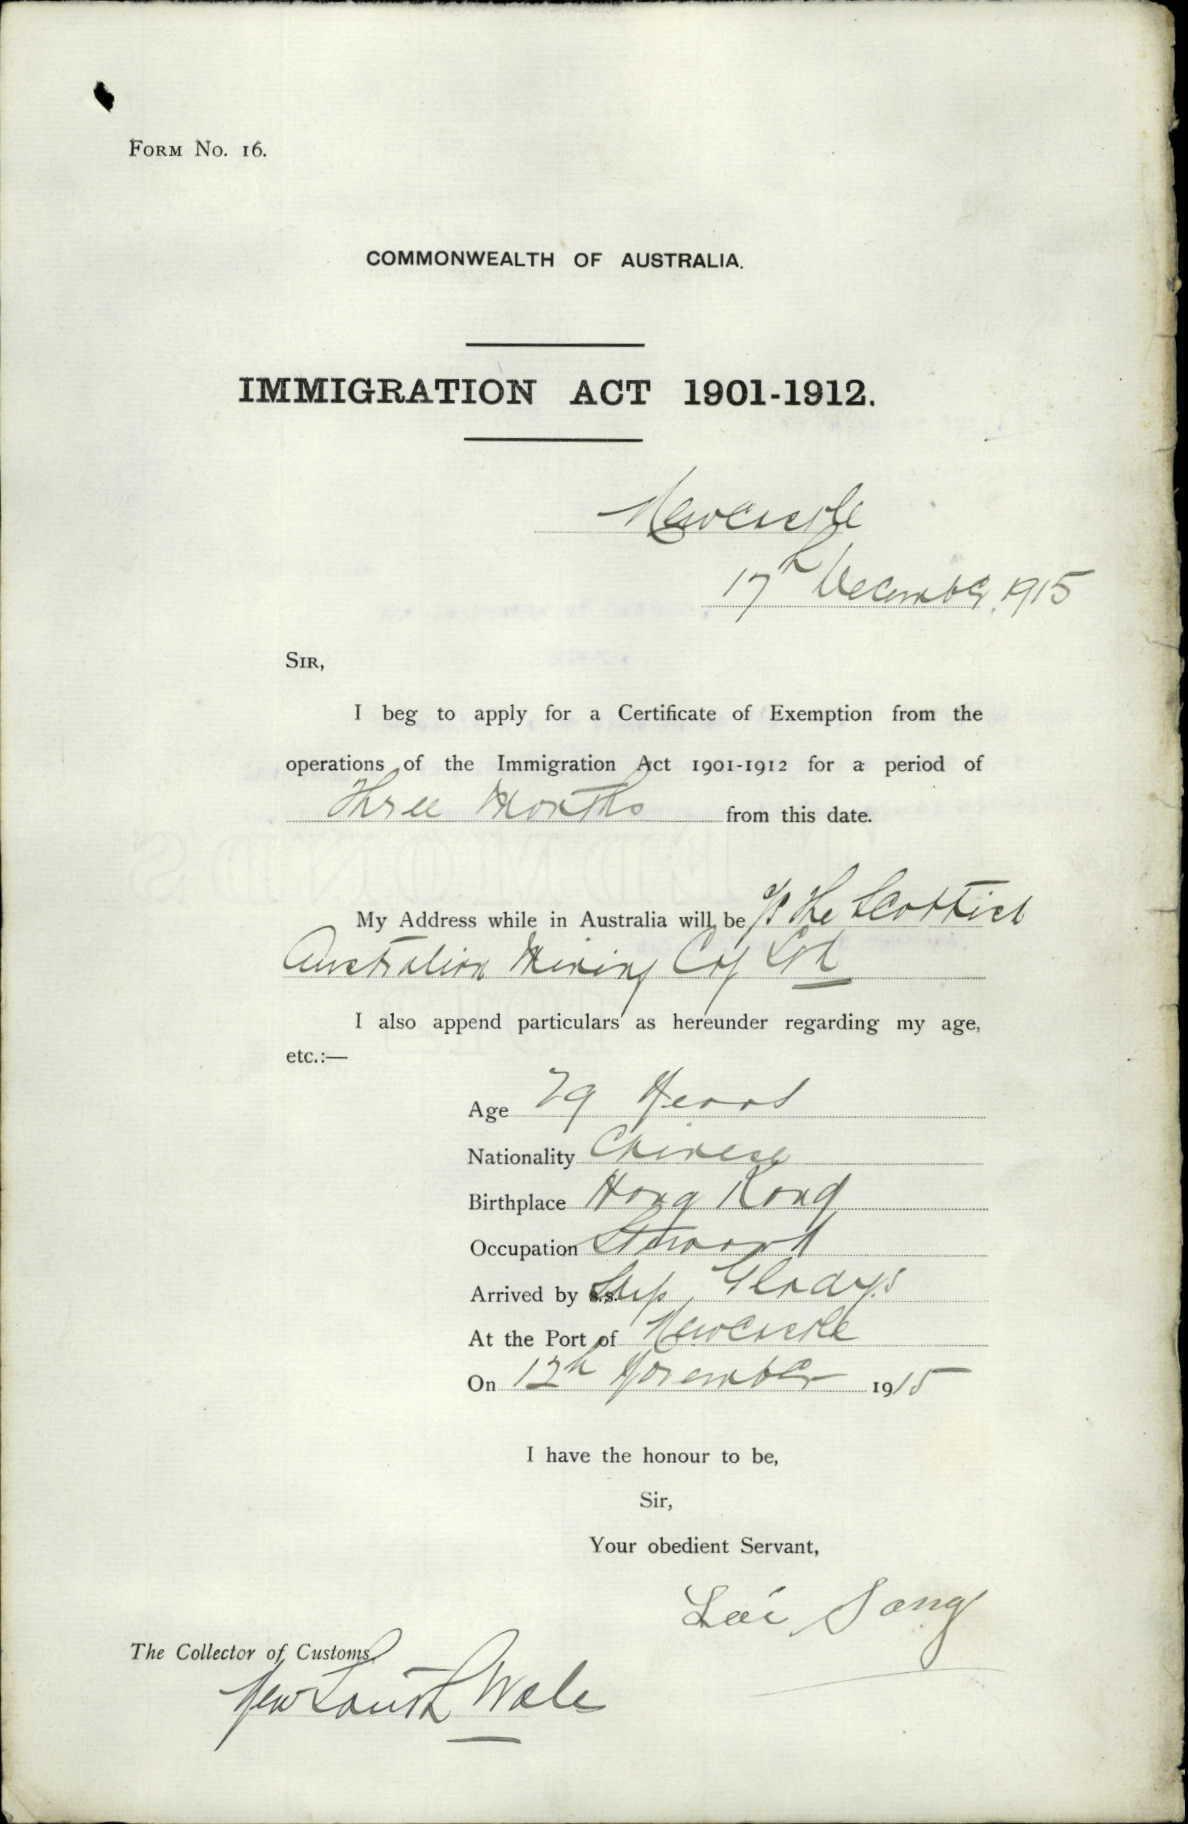 FORM No. 16.
COMMONWEALTH OF AUSTRALIA.
IMMIGRATION ACT 1901-1912.
Newcastle
17th December 1915
SIR,
I beg to apply for a Certificate of Exemption from the
operations of the Immigration Act 1901-1912 for a period of
Three Months from this date.
My Address while in Australia will be % The Scottish
Australian Mining Coy Ltd
I also append particulars as hereunder regarding my age,
etc.:—
Age 29 Years
Nationality Chinese
Birthplace Hong Kong
Occupation Steward
Arrived by s.s. Ship Gladys
At the Port of Newcastle
On 12th November 1915
I have the honour to be,
Sir,
Your obedient Servant,
Lai Sang
The Collector of Customs,
New South Wales